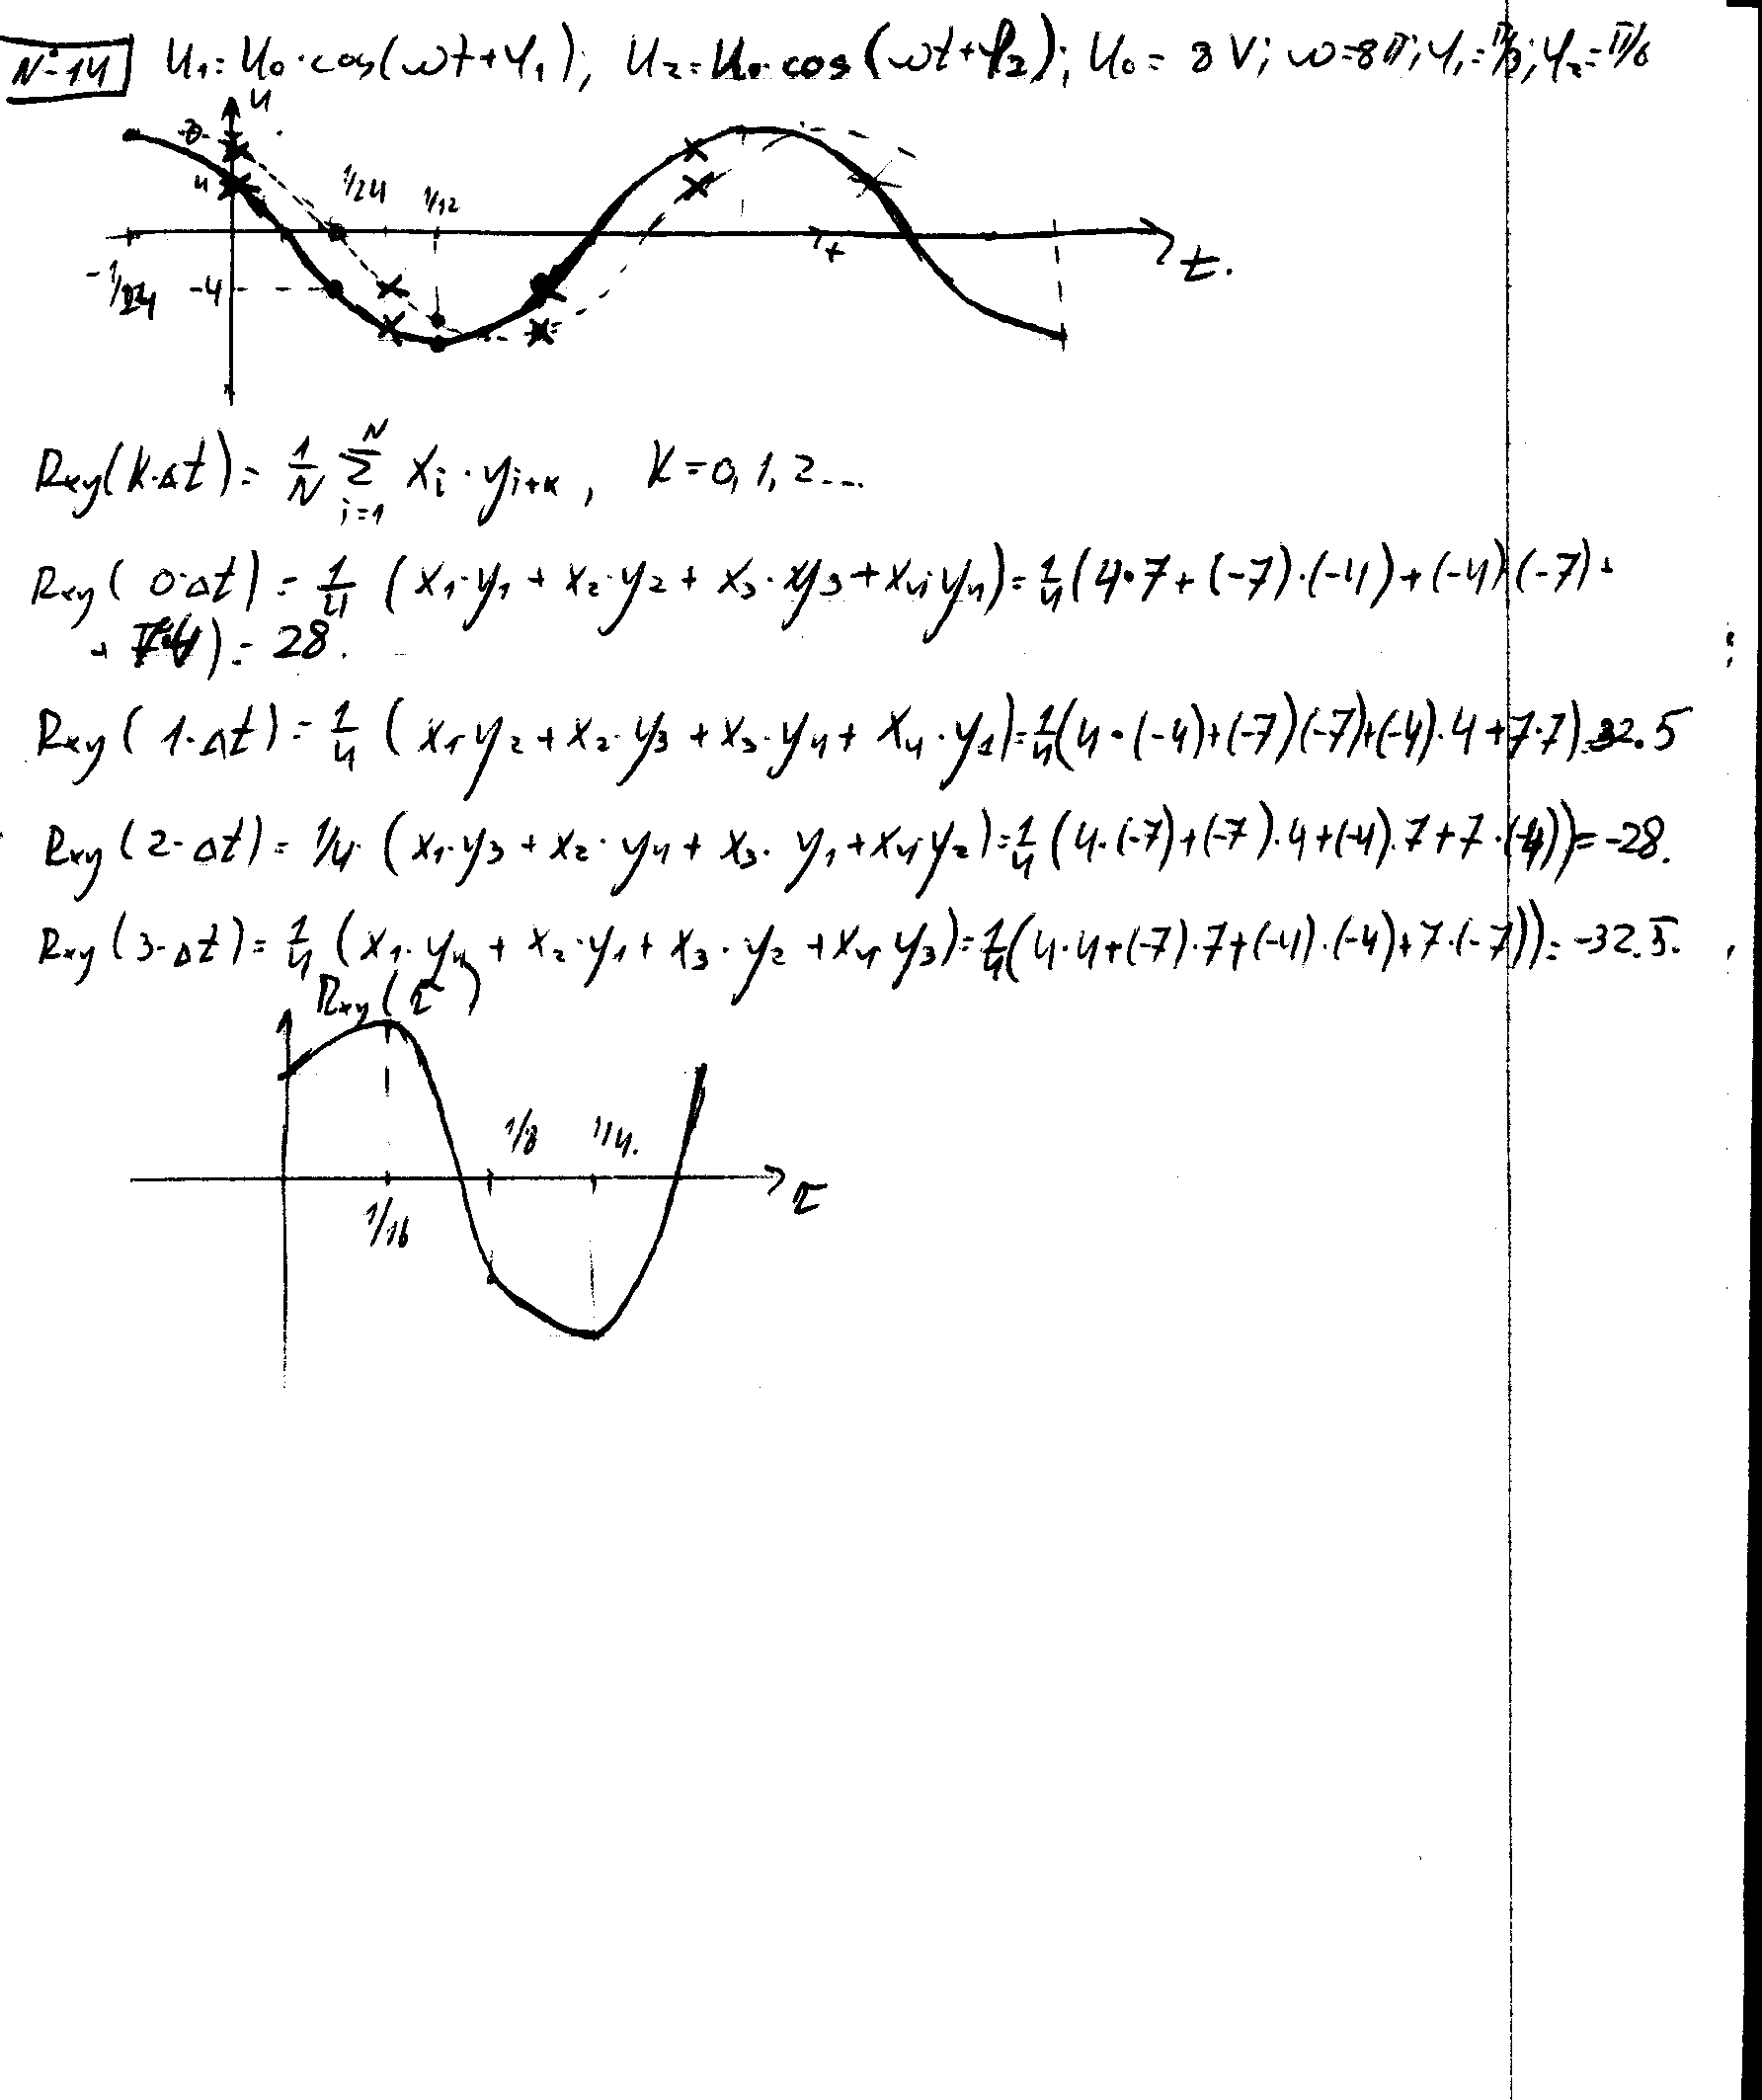 N-14 U₁=U₀·cos(ωt+φ₁), U₂=U₀·cos(ωt+φ₂); U₀= 8 V; ω=8π; φ₁=π/3; φ₂=π/6
u
8
4
1/24
1/12
t
-1/24
-4
t.
Rxy(k·Δt)= 1/N Σ xᵢ·yᵢ₊ₖ, K=0,1,2...
N
i=1
Rxy(0·Δt) = 1/4 (x₁·y₁ + x₂·y₂ + x₃·y₃ + x₄·y₄)=1/4(4·7+(-7)·(-4)+(-4)(-7)+
+ 7·4)= 28.
Rxy(1·Δt)= 1/4 (x₁·y₂+x₂·y₃+x₃·y₄+x₄·y₁)=1/4(4·(-4)+(-7)(-7)+(-4)·4+7·7)=32.5
Rxy(2·Δt)= 1/4·(x₁·y₃+x₂·y₄+x₃·y₁+x₄·y₂)=1/4(4·(-7)+(-7)·4+(-4)·7+7·(-4))=-28.
Rxy(3·Δt)= 1/4 (x₁·y₄+x₂·y₁+x₃·y₂+x₄·y₃)=1/4(4·4+(-7)·7+(-4)·(-4)+7·(-7))=-32.5.
Rxy(τ)
1/8
1/4.
τ
1/16